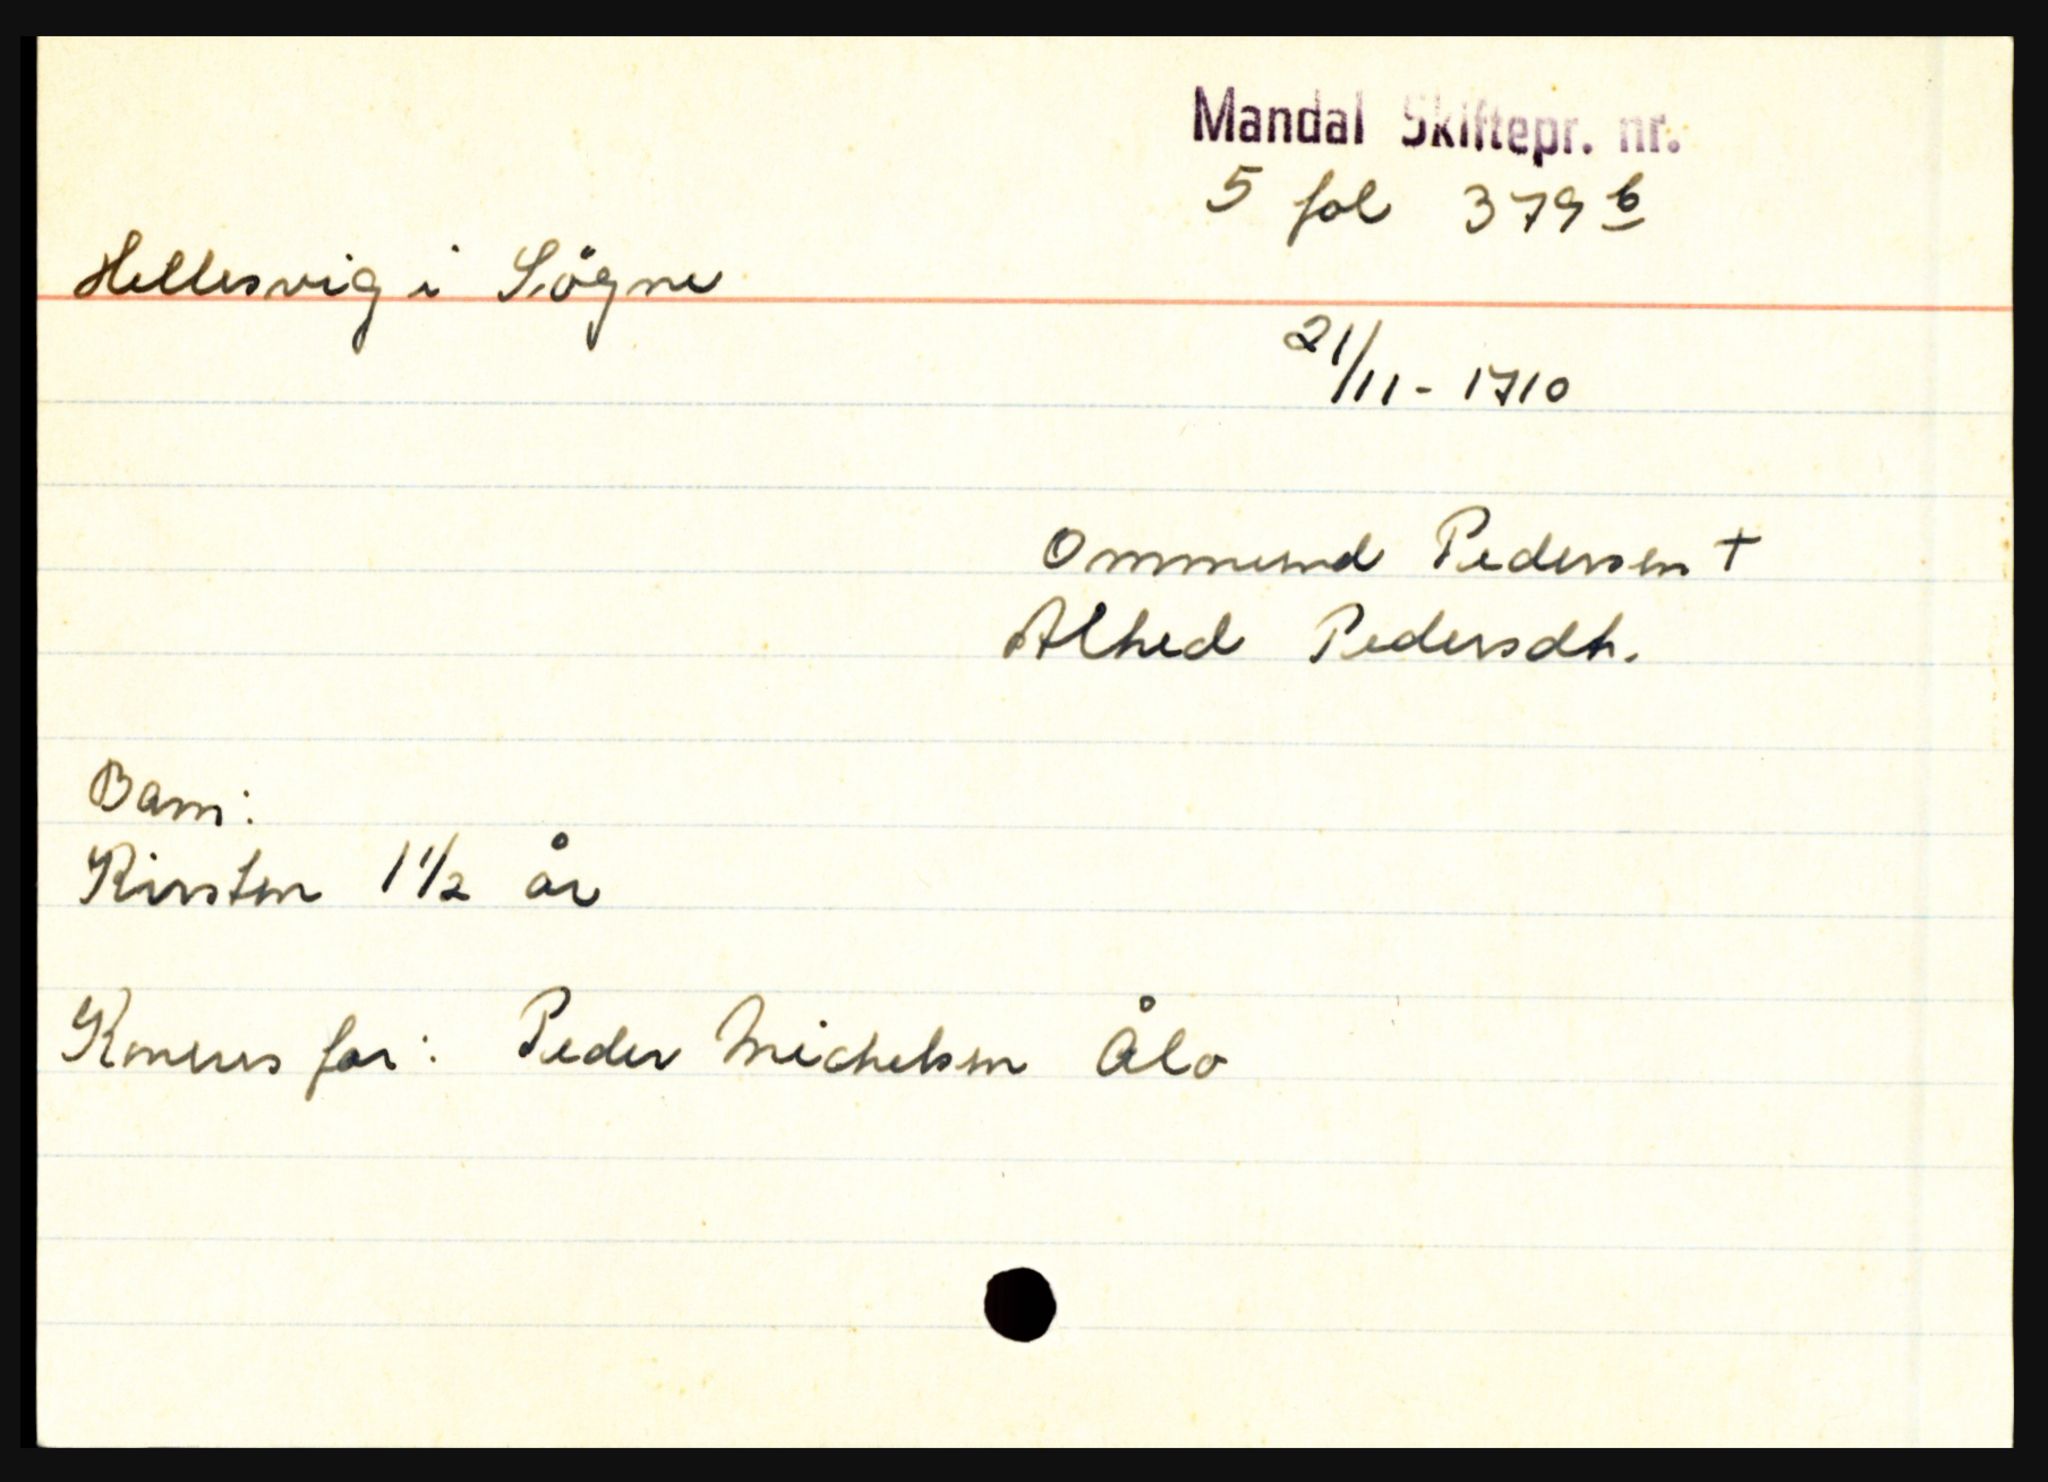 Mandal Skiftepr. nr.
5 fol 379 b
Hellesvig i Sögne
21/11 - 1710
Ommund Pedersen †
Alhed Pedersdt.
Barn:
Kirsten 1 1/2 år
Konens far: Peder Michelsen Ålo